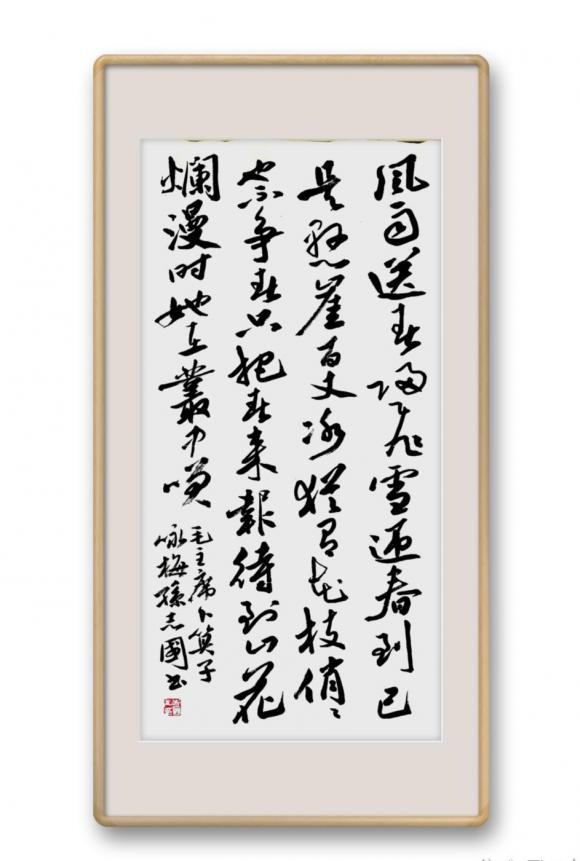 風雨送春归飛雪迎春到已
是懸崖百丈冰猶有花枝俏々
也不争春只把春来報待到山花
爛漫时她在叢中咲
毛主席卜算子
咏梅孫志國书